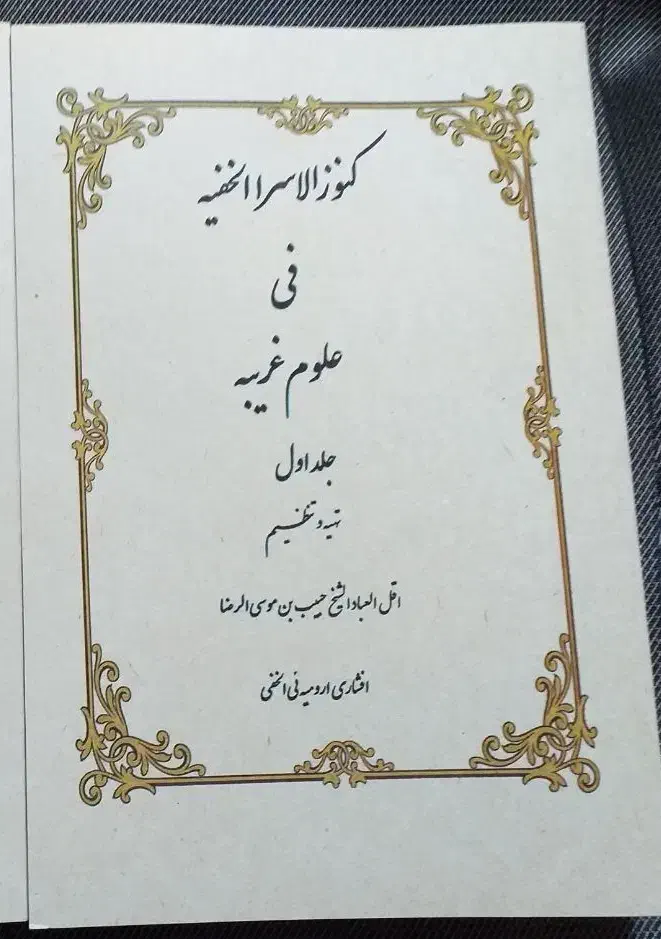 كنوز الاسرا الخفيه
فی
علوم غریبه
جلد اول
تهیه و تنظیم
اقل العباد الشیخ حبیب بن موسی الرضا
افشاری ارومیه ئی الخفی